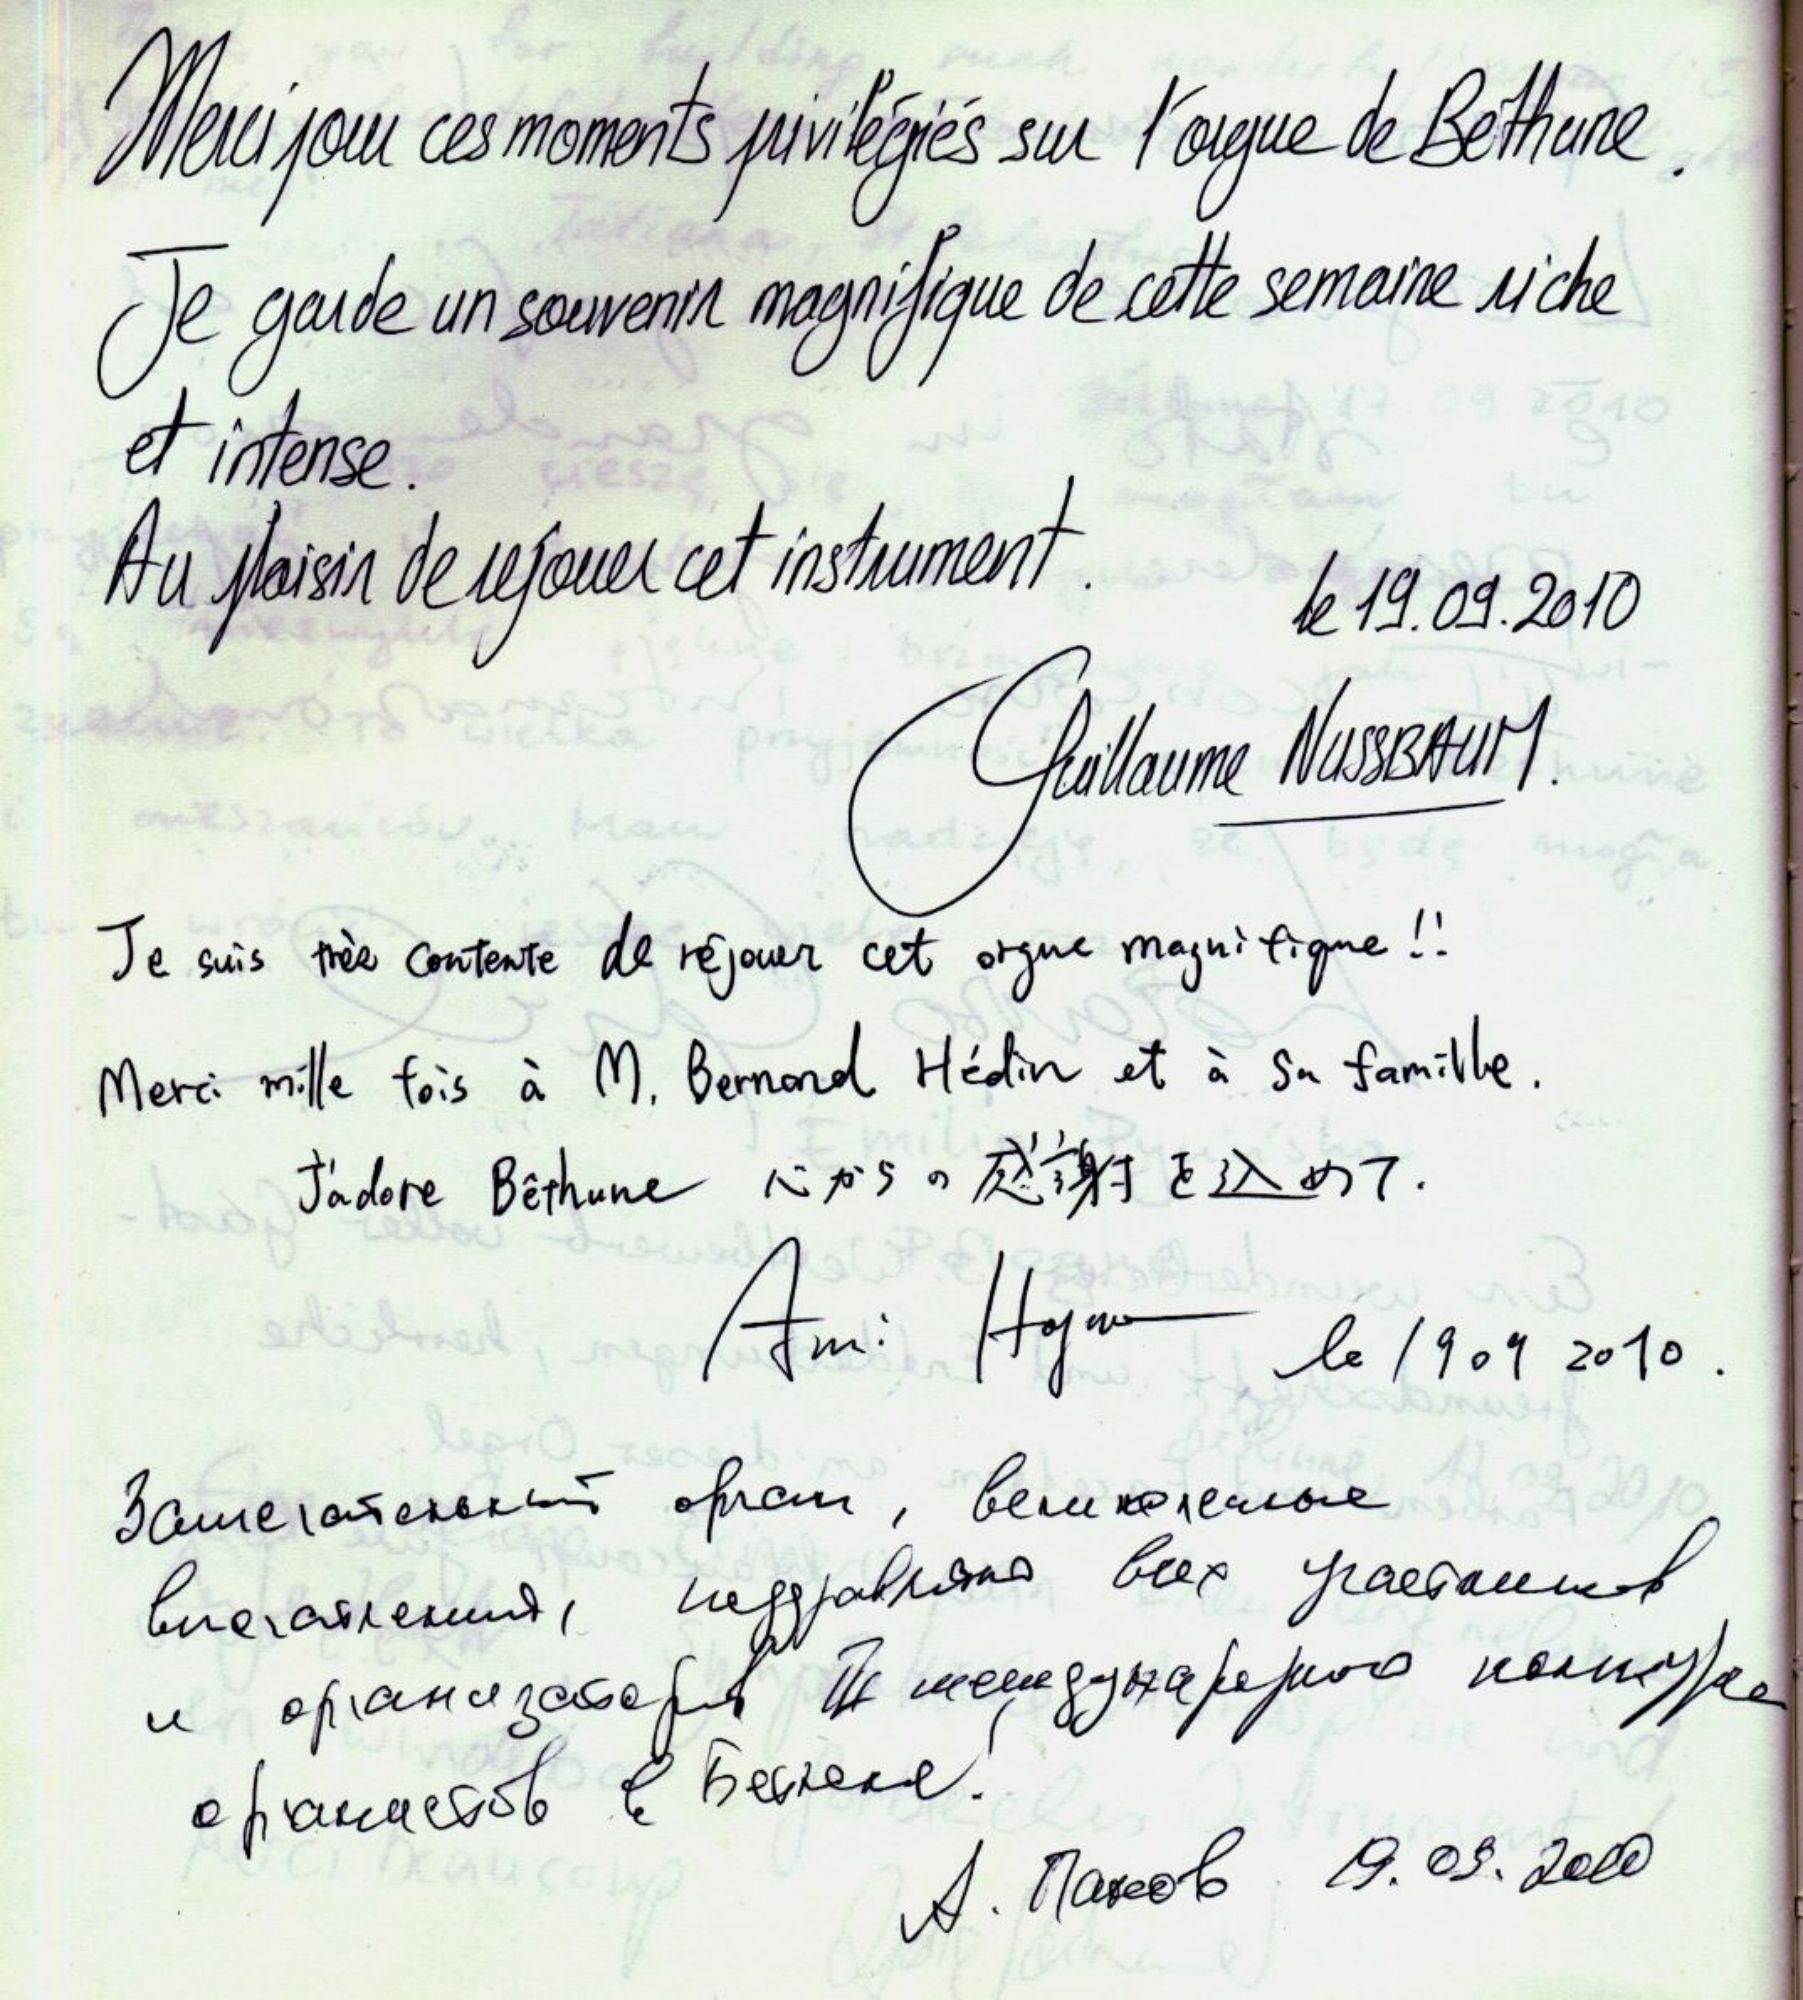 Merci pour ces moments privilégiés sur l'orgue de Béthune.
Je garde un souvenir magnifique de cette semaine riche
et intense.
Au plaisir de rejouer cet instrument.
le 19.09.2010
Guillaume NUSSBAUM.
Je suis très contente de réjouer cet orgue magnifique!!
Merci mille fois à M. Bernard Hédin et à sa famille.
J'adore Bêthune 心からの感謝を込めて.
Ami
le 19 09 2010.
Замечательный орган, великолепные
впечатления, поздравляю всех участников
и организаторов международного конкурса
органистов в Бетюне!
А. Панов 19.09.2010